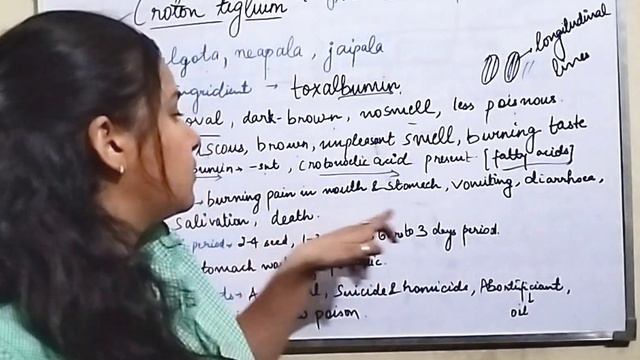 Croton tiglium
algota, neapala, jaipala
longitudinal
lines
ngridient → toxalbumin.
oval, dark-brown, nosmell, less poisnous.
scous, brown, unpleasent smell, burning taste
-snt, crotonoleic acid present. [fatty acids]
→ burning pain in mouth & stomach, vomiting, diarrhoea,
salivation, death.
period → 2-4 seed, to 3 days period.
stomach wa
Suicide & homicide, Abortificiant,
oil
poison.